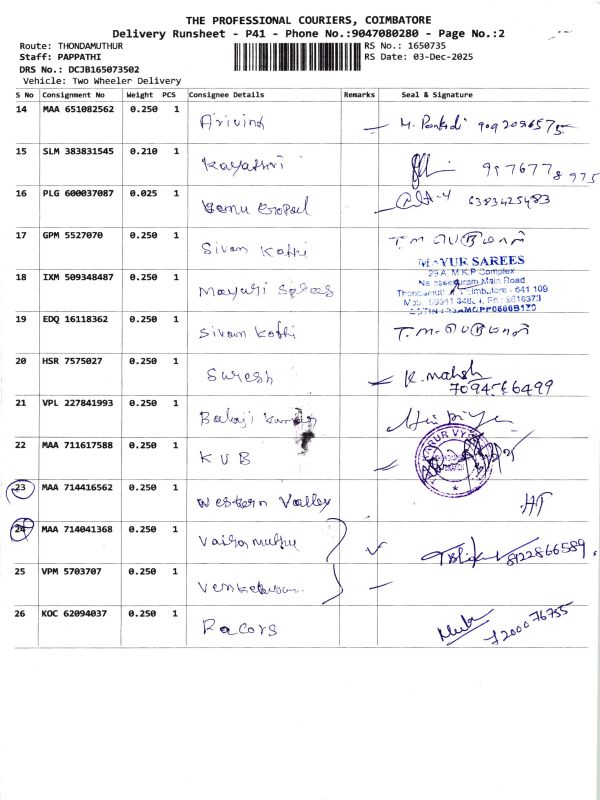 THE PROFESSIONAL COURIERS, COIMBATORE
Delivery Runsheet - P41 - Phone No.:9047080280 - Page No.:2
Route: THONDAMUTHUR RS No.: 1650735
Staff: PAPPATHI RS Date: 03-Dec-2025
DRS No.: DCJB165073502
Vehicle: Two Wheeler Delivery
S No Consignment No Weight PCS Consignee Details Remarks Seal & Signature
14 MAA 651082562 0.250 1 Arivind
15 SLM 383831545 0.210 1 Kayathri
16 PLG 600037087 0.025 1 6383425483
17 GPM 5527070 0.250 1 Sivam Kothi
MAYUR SAREES
29 A M.K.P Complex
18 IXM 509348487 0.250 1 Mayuri Sarees
19 EDQ 16118362 0.250 1 Sivam Kothi
20 HSR 7575027 0.250 1 Suresh K. mahsh
7094566499
21 VPL 227841993 0.250 1 Balaji
22 MAA 711617588 0.250 1 KVB
23 MAA 714416562 0.250 1 Western Valley HT
24 MAA 714041368 0.250 1 Vairamuthu 8122866589
25 VPM 5703707 0.250 1
26 KOC 62094037 0.250 1 Racors